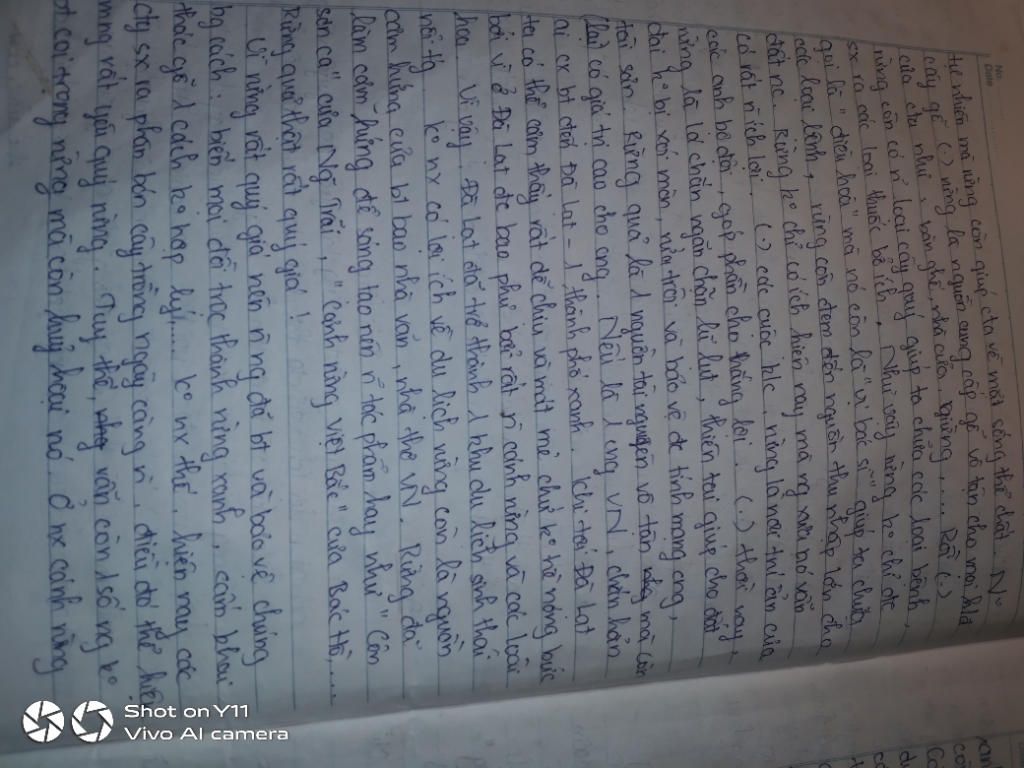 tự nhiên mà rừng còn giúp cta về mặt sống thể chất. Nó
cây gỗ (.) rừng là nguồn cung cấp gỗ vô tận cho mọi
của cta như, bàn ghế, nhà cửa, giường,... Rồi (.)
rừng còn có n̄ loại cây quý giúp ta chữa các loại bệnh,
sx ra các loại thuốc bổ ích. Như vậy rừng ko chỉ đc
gọi là "điều hoà" mà nó còn là "vị bác sĩ" giúp ta chữa
các loại bệnh, rừng còn đem đến nguồn thu nhập lớn cho
đất nc. Rừng ko chỉ có ích hiện nay mà ng xưa nó vẫn
có rất n̄ ích lợi. (.) các cuộc k/c, rừng là nơi trú ẩn của
các anh bộ đội, góp phần cho thắng lợi. (.) thời nay,
rừng là lá chắn ngăn chặn lũ lụt, thiên tai giúp cho đất
đai ko bị xói mòn, rửa trôi và bảo vệ đc tính mạng cong,
tài sản. Rừng quả là 1 nguồn tài nguyên vô tận mà còn
(lại) có giá trị cao cho cng. Nếu là 1 cng VN, chắn hẳn
ai cx bt đến Đà Lạt - 1 thành phố xanh. Khi tới Đà Lạt
ta có thể cảm thấy rất dễ chịu và mát mẻ chứ ko hề nóng bức
bởi vì ở Đà Lạt đc bao phủ bởi rất n̄ cánh rừng và các loài
hoa. Vì vậy, Đà Lạt đã trở thành 1 khu du lịch sinh thái
nổi tg. Ko nx có lợi ích về du lịch rừng còn là nguồn
cảm hứng của bt bao nhà văn, nhà thơ VN. Rừng đã
làm cảm hứng để sáng tạo nên n̄ tác phẩm hay như "Côn
sơn ca" của Ng Trãi, "Cảnh rừng Việt Bắc" của Bác Hồ,...
Rừng quả thật rất quý giá!
Vì rừng rất quý giá nên n̄ ng đã bt và bảo vệ chúng
bg cách: biến mọi đồi trọc thành rừng xanh, cấm khai
thác gỗ 1 cách ko hợp lý,... Ko nx thế, hiện nay các
cty sx ra phân bón cây trồng ngày càng n̄, điều đó thể hiện
mng rất yêu quý rừng. Tuy thế, vẫn còn 1 số ng ko
coi trọng rừng mà còn huỷ hoại nó. Ở nx cánh rừng